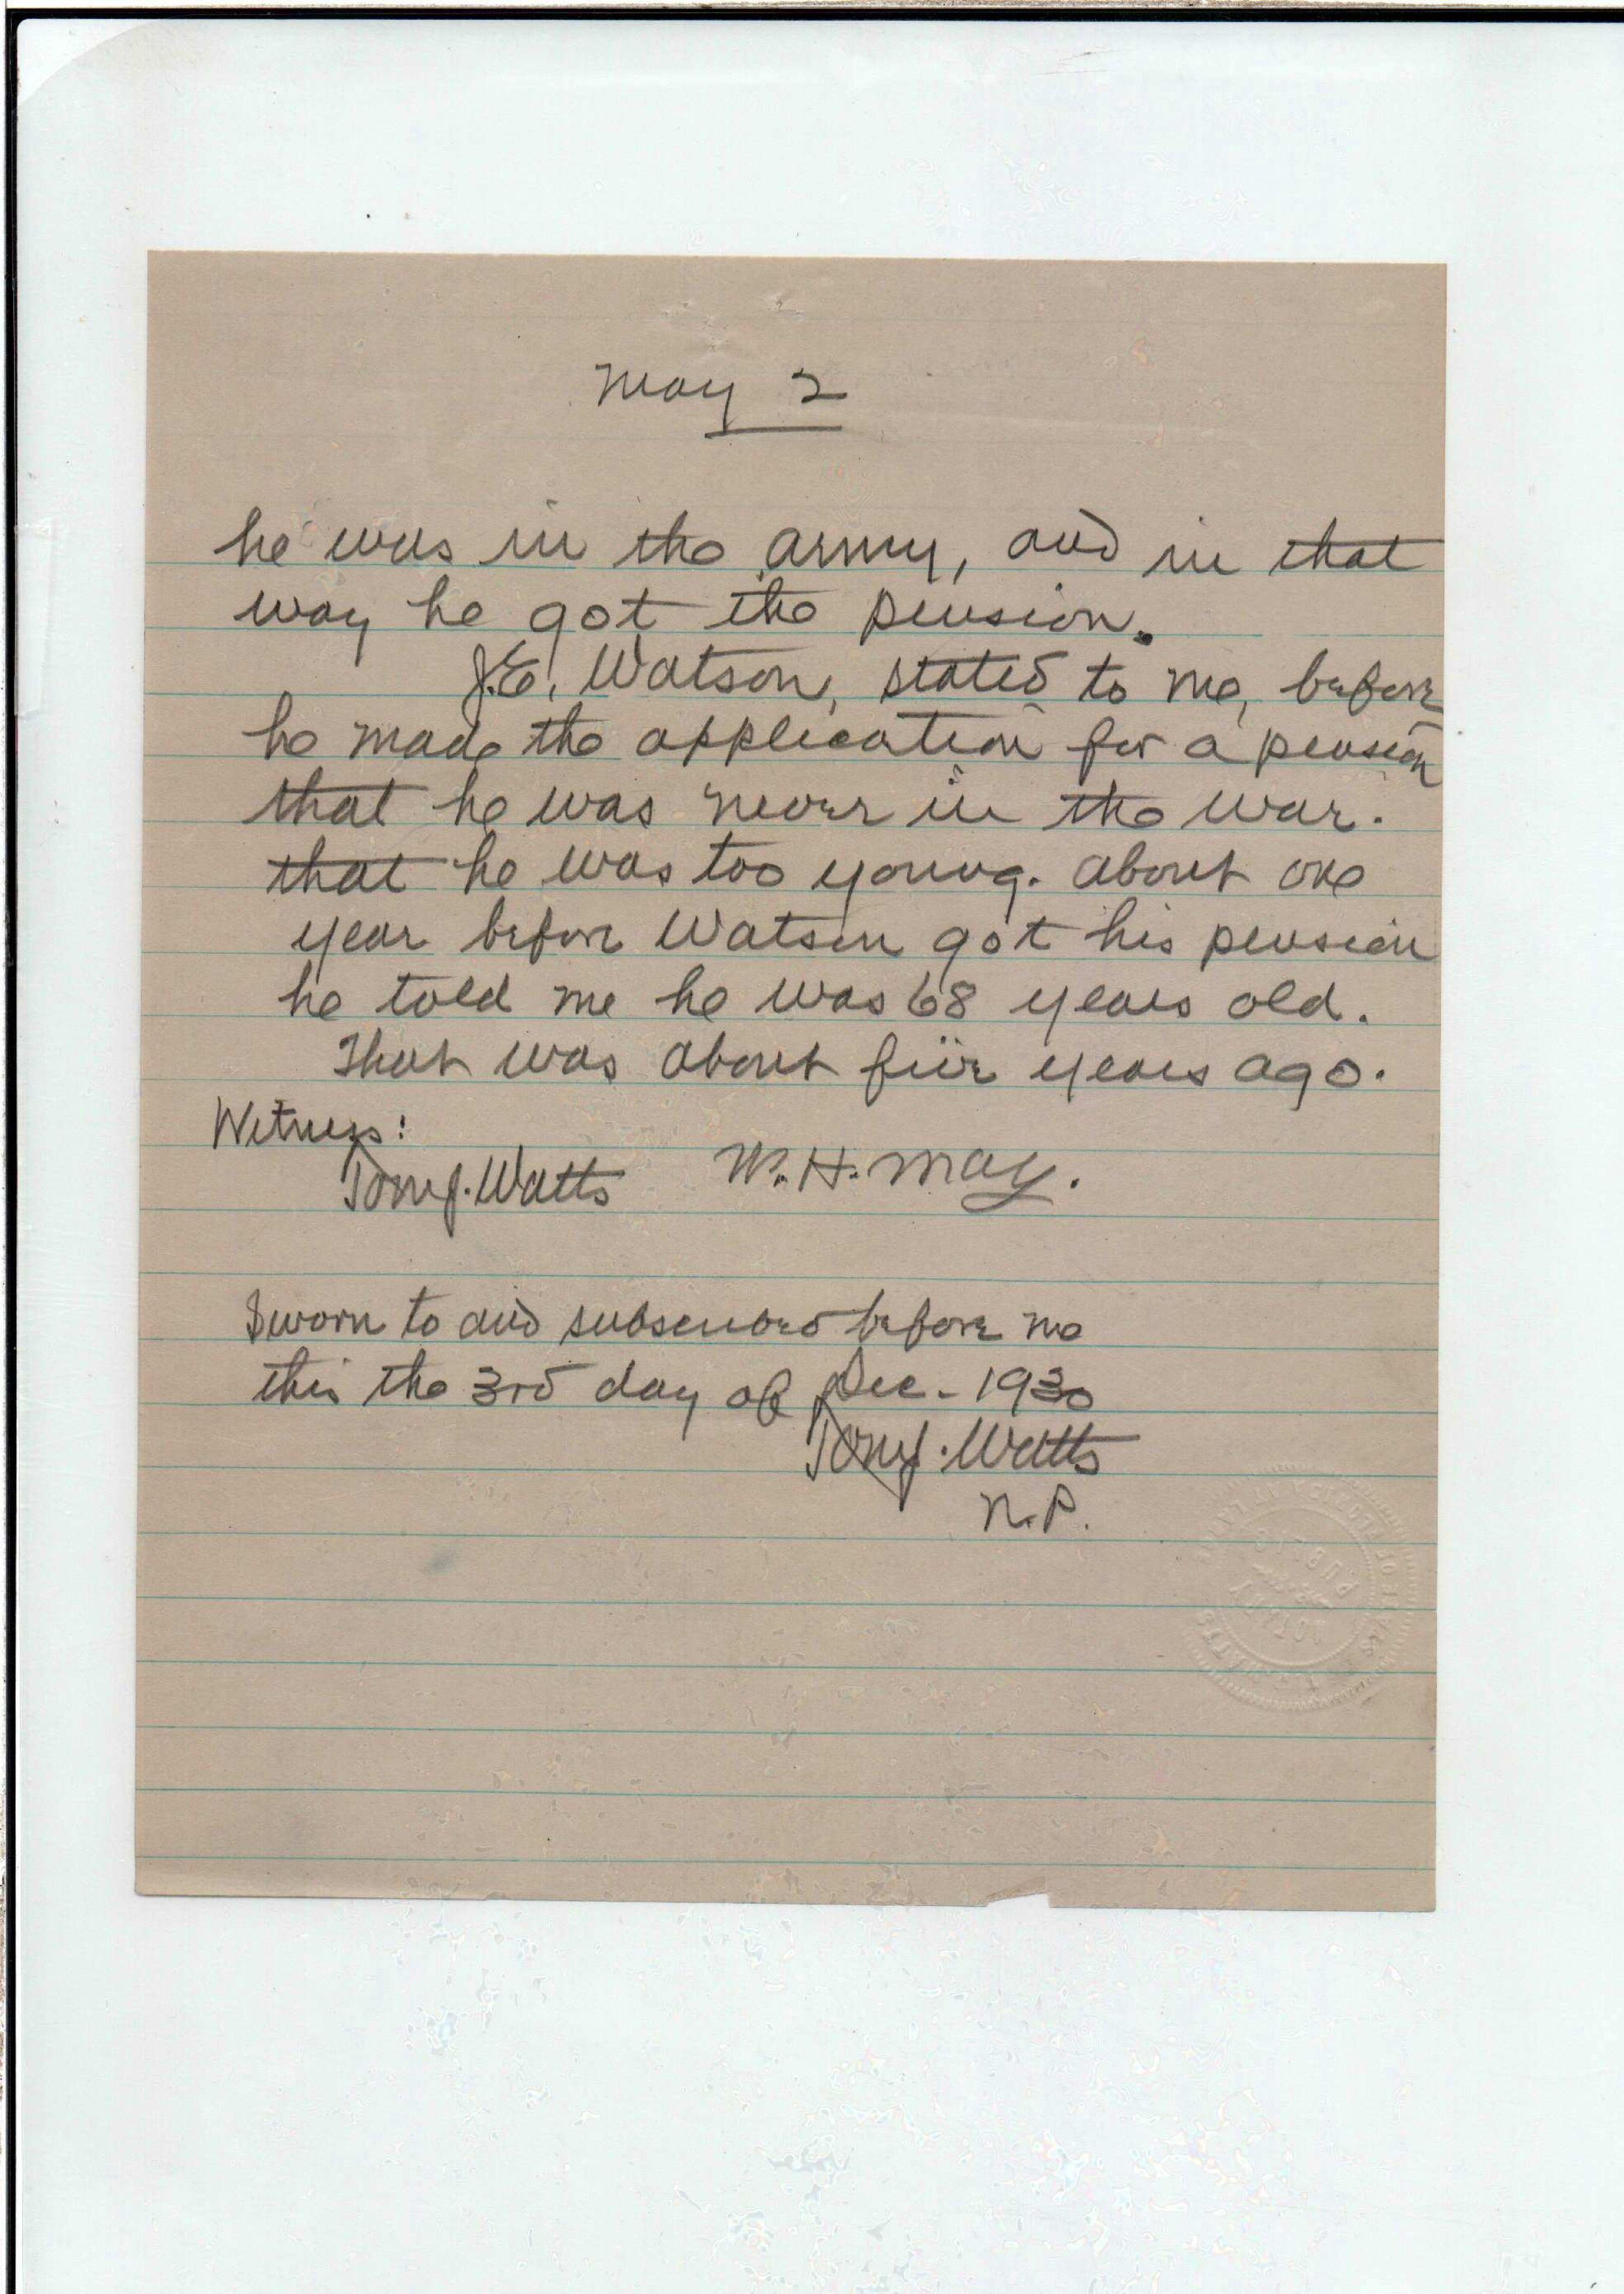 May 2
he was in the army, and in that
way he got the pension.
J.E. Watson, stated to me, before
he made the application for a pension
that he was never in the war.
that he was too young. about one
year before Watson got his pension
he told me he was 68 years old.
That was about five years ago.
Witness:
Tom J. Watts W. H. May.
Sworn to and subscribed before me
this the 3rd day of Dec - 1930
Tom J. Watts
N.P.
NOTARY
PUBLIC